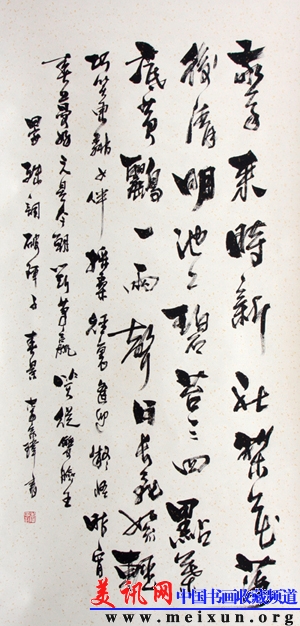 燕子来時新社梨花落
後清明池上碧苔三四點葉
底黄鸝一兩聲日長飛絮輕
巧笑東鄰女伴採桑徑裏逢迎疑怪昨宵
春夢好元是今朝鬥草贏笑從雙臉生
晏殊詞破陣子春景 書
美讯网 中国书画收藏频道
www.meixun.org